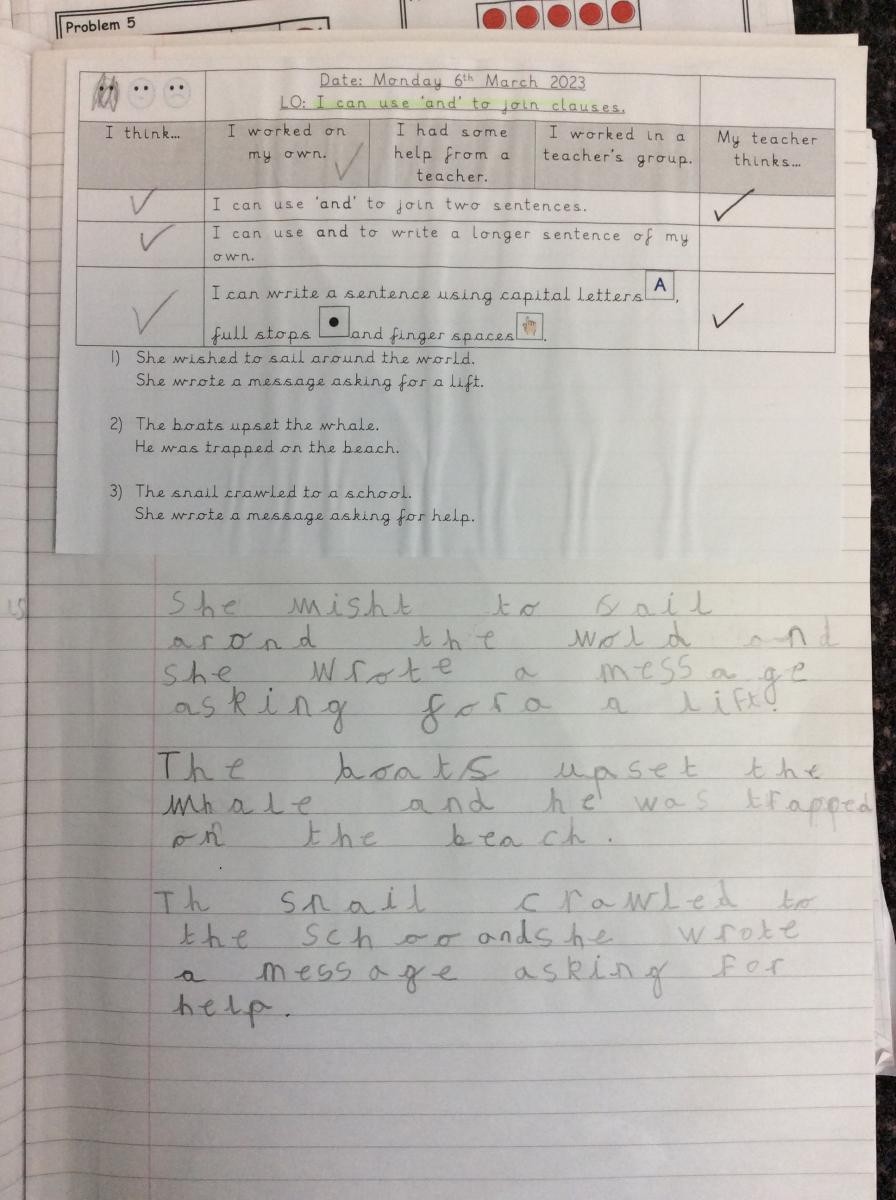 Problem 5
Date: Monday 6th March 2023
LO: I can use 'and' to join clauses.
I think...
I worked on my own.
I had some help from a teacher.
I worked in a teacher's group.
My teacher thinks...
I can use 'and' to join two sentences.
I can use and to write a longer sentence of my
own.
I can write a sentence using capital letters A,
full stops and finger spaces.
1) She wished to sail around the world.
She wrote a message asking for a lift.
2) The boats upset the whale.
He was trapped on the beach.
3) The snail crawled to a school.
She wrote a message asking for help.
She misht to sail
arond the wold and
she wrote a message
asking fora a lift.
The boats upset the
whale and he was trapped
on the beach.
Th snail crawled to
the schoo and she wrote
a message asking for
help.